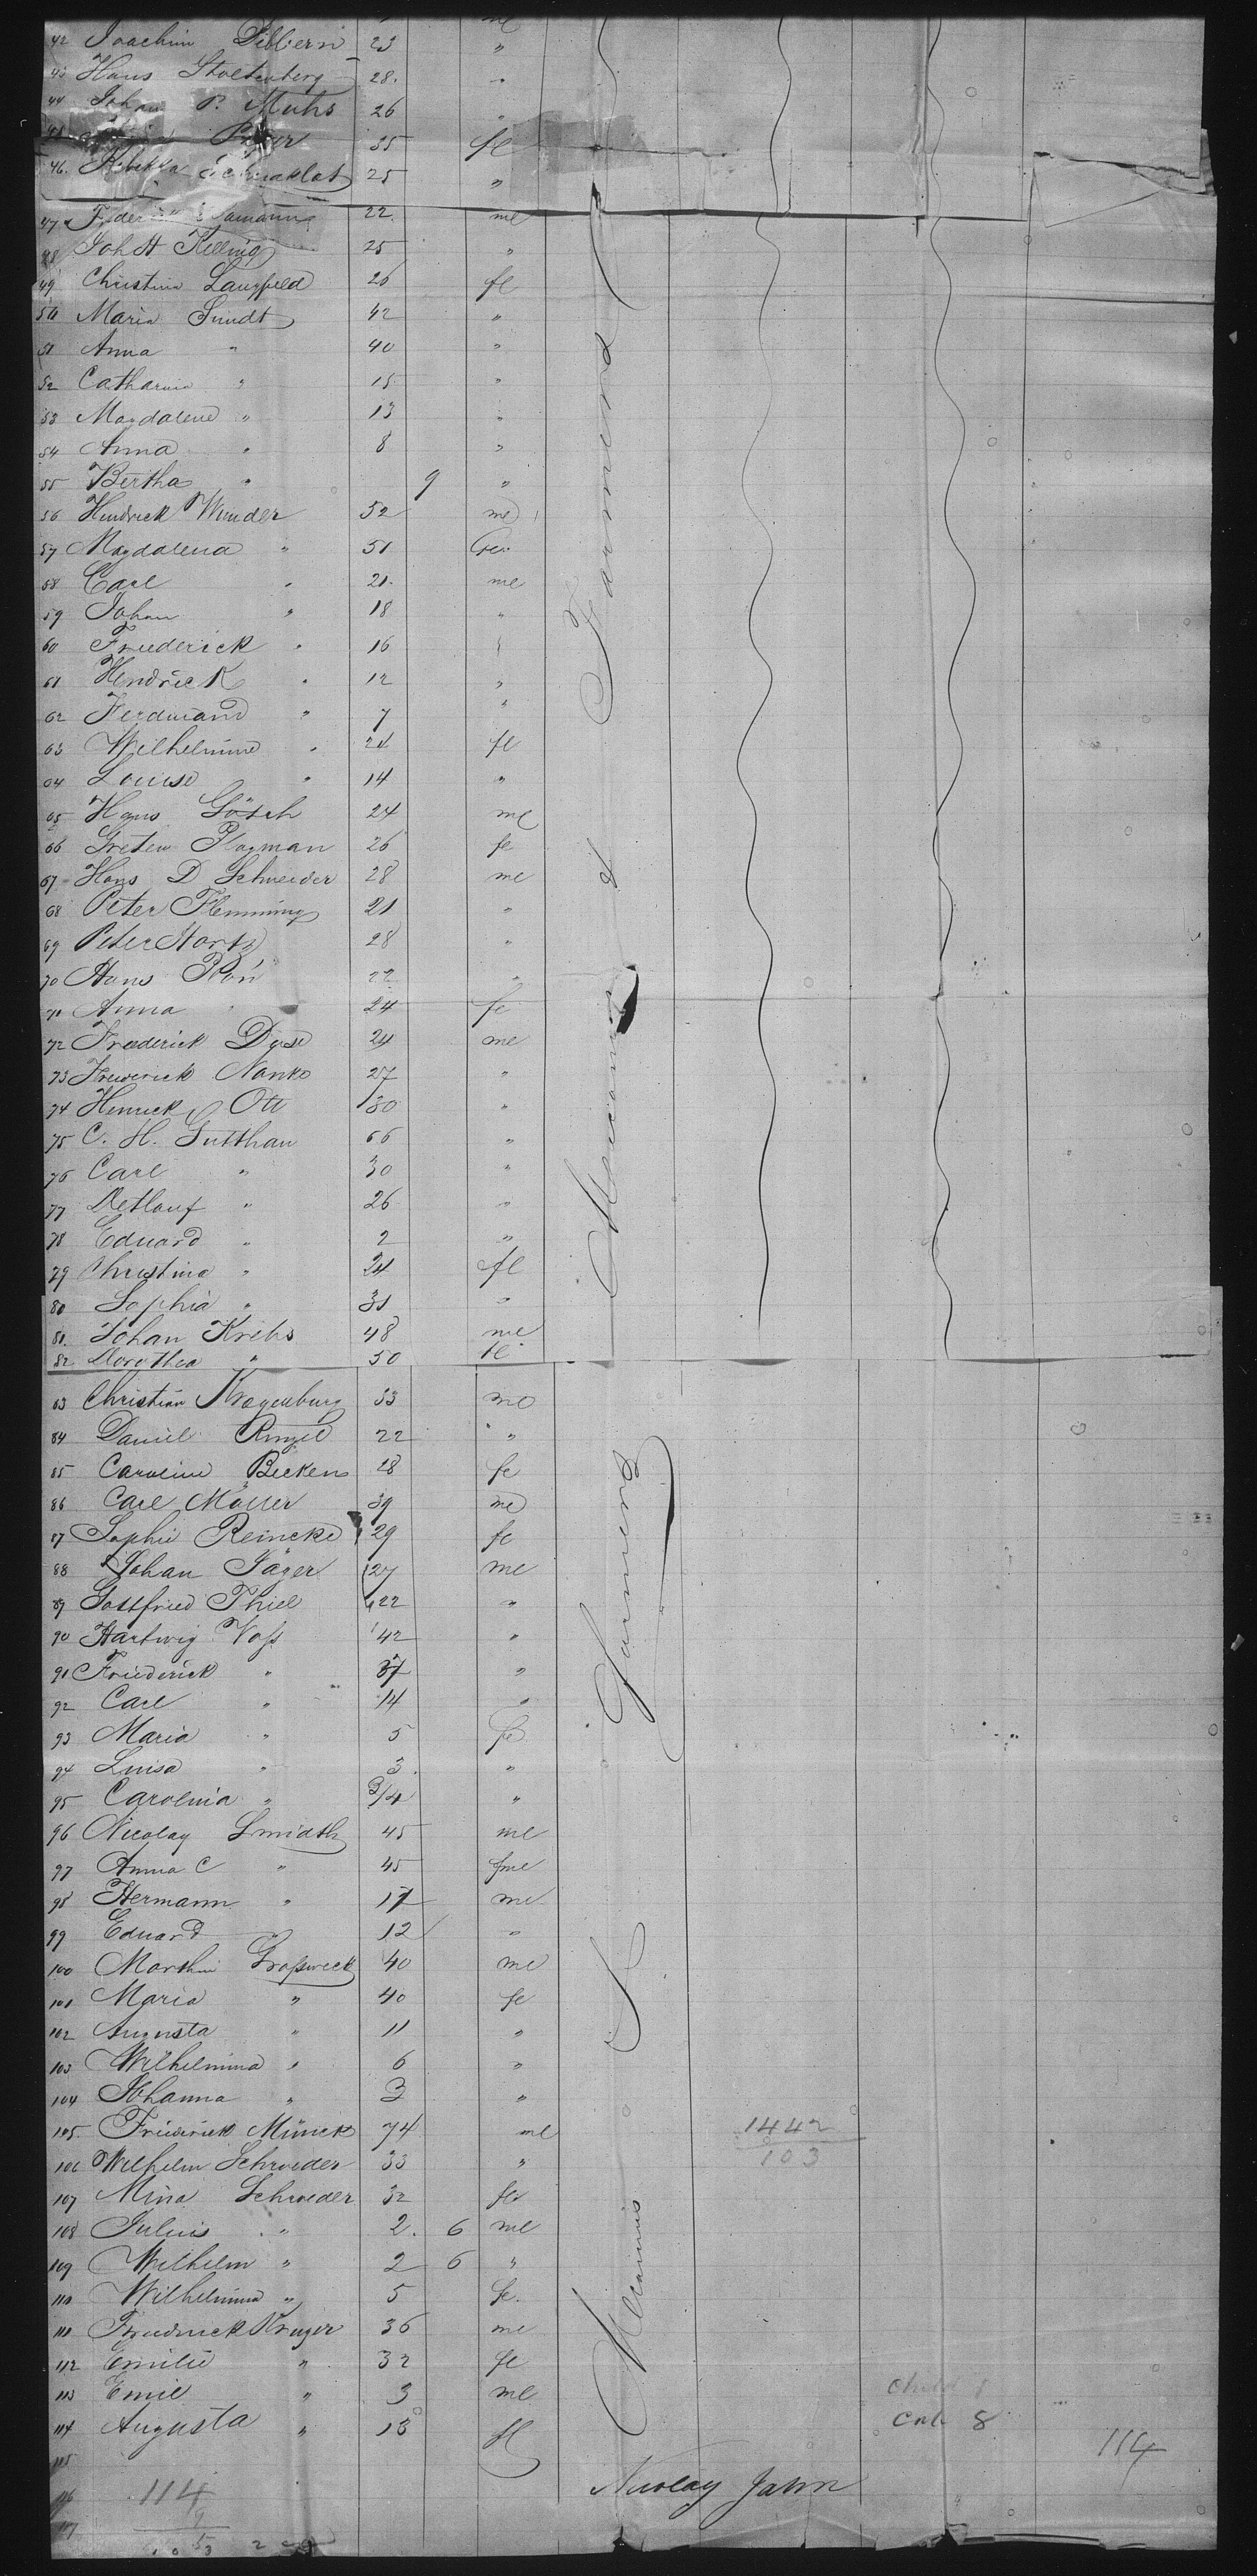 42 Joachim Sibbern 23 "
43 Hans Stoltenberg 28. "
44 Johan P. Muhs 26 "
35 fl
46. Rebekka 25 "
47 22. ml
48 Joh H Kelling 25 "
49 Christina Langfeld 26 fl
50 Maria Sundt 42 "
51 Anna " 40 "
52 Catharina " 15 "
53 Magdalene " 13 "
54 Anna " 8 "
55 Bertha " 9 "
56 Hendrick Wunder 52 ml
57 Magdalena " 51 fe
58 Carl " 21. ml
59 Johan " 18 "
60 Friederick " 16 "
61 Hendrick " 12 "
62 Ferdinand " 7 "
63 Wilhelmine " 24 fl
64 Louise " 14 "
65 Hans Gösch 24 ml
66 Greten Plagman 26 fe
67 Hans D Schneider 28 ml
68 Peter Flemming 21 "
69 Peter Hartz 28 "
70 Hans Plön 22 "
71 Anna " 24 fe
72 Frederick Dose 24 ml
73 Frederick Nanko 27 "
74 Henrick Ott 30 "
75 C. H. Sutthau 66 "
76 Carl " 30 "
77 Detlauf " 26 "
78 Eduard " 2 "
79 Christina " 24 fl
80 Sophia " 31 "
81. Johan Krebs 48 ml
82 Dorothea " 50 fl
Mecanics & Farmers
83 Christian Kragenburg 33 ml
84 Daniel Ringel 22 "
85 Caroline Becken 28 fe
86 Carl Möller 39 ml
87 Sophie Reincke 29 fe
88 Johan Jäger 27 ml
89 Gottfried Thiel 22 "
90 Hartwig Voß 42 "
91 Friederick " 37 "
92 Carl " 14 "
93 Maria " 5 fe
94 Luisa " 3. "
95 Carolina " 3/4 "
96 Nicolay Smidth 45 ml
97 Anna C " 45 fme
98 Hermann " 17 ml
99 Eduard " 12 "
100 Marthin Graßwick 40 ml
101 Maria " 40 fe
102 Augusta " 11 "
103 Wilhelmina " 6 "
104 Johanna " 3 "
105. Friederick Münck 74 ml
106 Wilhelm Schroeder 33 "
107 Mina Schroeder 32 fe
108 Julius " 2. 6 ml
109 Wilhelm " 2 6 "
110 Wilhelmina " 5 fe.
111 Friedrick Kruger 36 ml
112 Emilie " 32 fl
113 Emil " 3 ml
114 Augusta " 13 fl
115
116
117
Mecanics & Farmers
1442
103
8
114
Nicolay Jahn
114